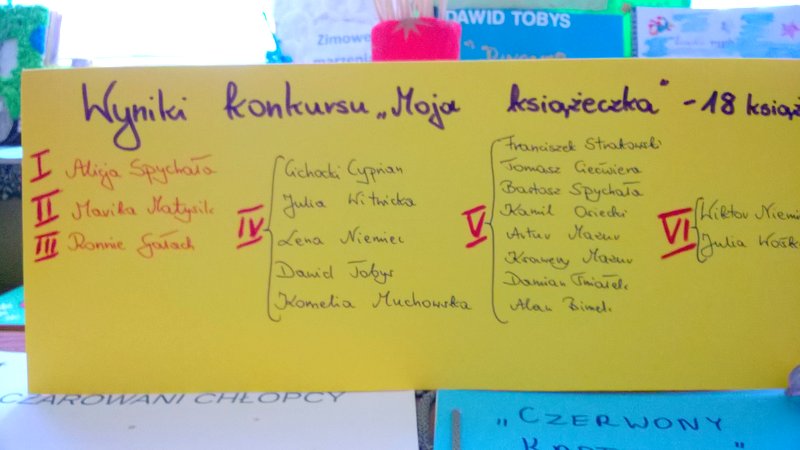 DAWID TOBYS
Zimowe
marzenia
Wyniki konkursu „Moja książeczka" - 18 książ
I Alicja Spychała
II Marika Małysik
III Ronnie Gałach
IV
Cichocki Cyprian
Julia Witnicka
Lena Niemiec
Dawid Tobys
Kornelia Muchowska
V
Franciszek Strakowski
Tomasz Ciećwierz
Bartosz Spychała
Kamil Osiecki
Artur Mazur
Ksawery Mazur
Damian
Alan Bimek
VI
Wiktor Niemi
Julia
CZAROWANI CHŁOPCY
„CZERWONY